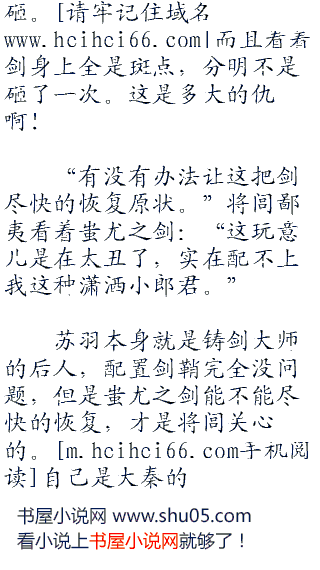 砸。[请牢记住域名
www.hcihci66.com|而且看看
剑身上全是斑点，分明不是
砸了一次。这是多大的仇
啊！
“有没有办法让这把剑
尽快的恢复原状。”将闾鄙
夷看着蚩尤之剑：“这玩意
儿是在太丑了，实在配不上
我这种潇洒小郎君。”
苏羽本身就是铸剑大师
的后人，配置剑鞘完全没问
题，但是蚩尤之剑能不能尽
快的恢复，才是将闾关心
的。[m.hcihci66.com手机阅
读]自己是大秦的
书屋小说网 www.shu05.com
看小说上书屋小说网就够了！